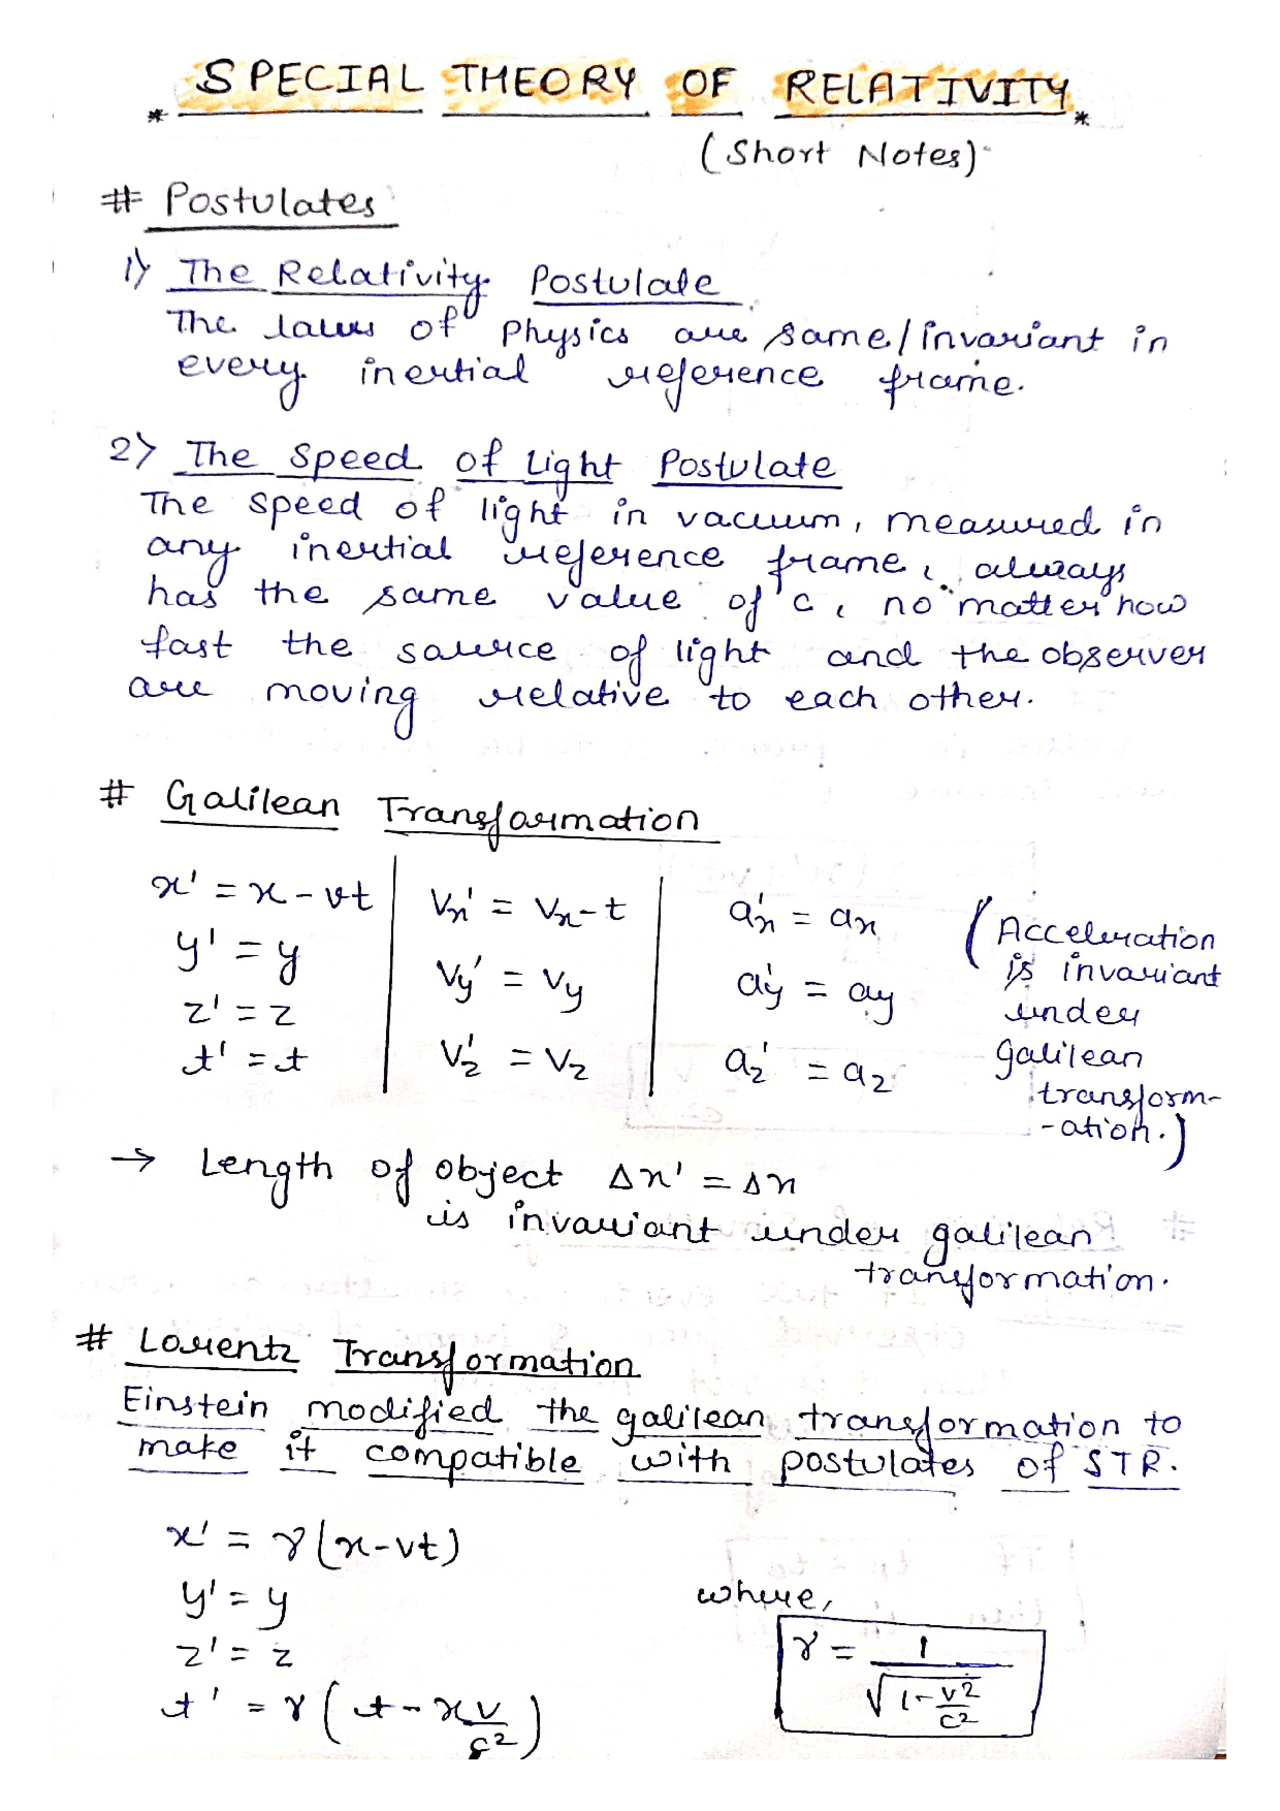 * SPECIAL THEORY OF RELATIVITY *
(Short Notes)
# Postulates
1) The Relativity Postulate
The laws of Physics are same/invariant in
every inertial reference frame.
2) The Speed of Light Postulate
The speed of light in vacuum, measured in
any inertial reference frame, always
has the same value of 'c', no matter how
fast the source of light and the observer
are moving relative to each other.
# Galilean Transformation
x' = x - vt
y' = y
z' = z
t' = t
Vx' = Vx - t
Vy' = Vy
Vz' = Vz
ax' = ax
ay' = ay
az' = az
(Acceleration
is invariant
under
galilean
transform-
-ation.)
→ Length of object Δx' = Δx
is invariant under galilean
transformation.
# Lorentz Transformation
Einstein modified the galilean transformation to
make it compatible with postulates of STR.
x' = γ(x-vt)
y' = y
z' = z
t' = γ(t - xv/c²)
where,
γ = 1/√(1 - v²/c²)